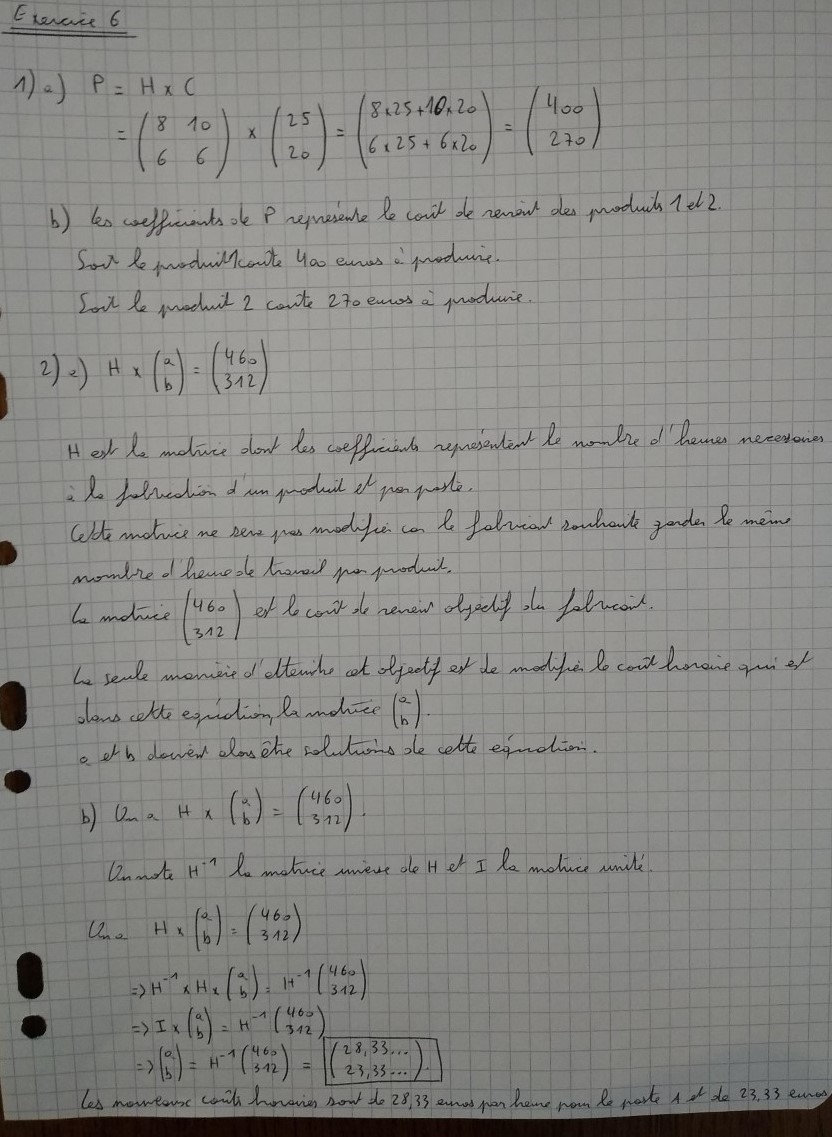 Exercice 6
1) a) P = H x C
= ( 8 10 ; 6 6 ) x ( 25 ; 20 ) = ( 8x25+10x20 ; 6x25+6x20 ) = ( 400 ; 270 )
b) les coefficients de P représente le coût de revient des produits 1 et 2.
Soit le produit 1 coute 400 euros à produire.
Soit le produit 2 coute 270 euros à produire.
2) a) H x ( a ; b ) = ( 460 ; 312 )
H est la matrice dont les coefficients représentent le nombre d'heures necessaires
à la fabrication d'un produit et par poste.
Cette matrice ne sera pas modifiée car le fabricant souhaite garder le même
nombre d'heure de travail par produit.
La matrice ( 460 ; 312 ) est le coût de revient objectif du fabricant.
La seule manière d'atteindre cet objectif est de modifier le coût horaire qui est
dans cette equation, la matrice ( a ; b ).
a et b doivent alors être solutions de cette équation.
b) On a H x ( a ; b ) = ( 460 ; 312 ).
On note H⁻¹ la matrice inverse de H et I la matrice unité.
On a H x ( a ; b ) = ( 460 ; 312 )
=> H⁻¹ x H x ( a ; b ) = H⁻¹ ( 460 ; 312 )
=> I x ( a ; b ) = H⁻¹ ( 460 ; 312 )
=> ( a ; b ) = H⁻¹ ( 460 ; 312 ) = ( 28,33... ; 23,33... ).
Les nouveaux coûts horaires sont de 28,33 euros par heure pour le poste 1 et de 23,33 euros